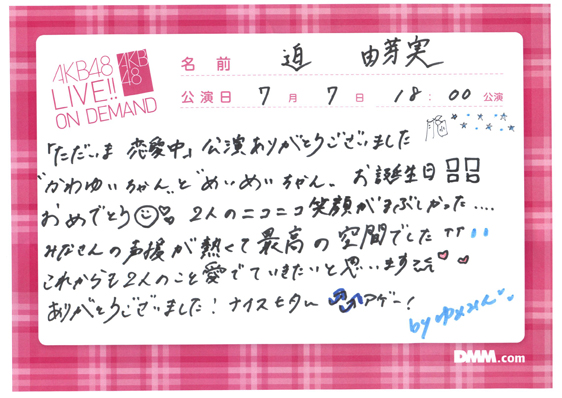 AKB48
LIVE!!
ON DEMAND
AKB
48
名前 迫 由芽実
公演日 7月7日 18:00公演
「ただいま 恋愛中」公演ありがとうございました
かわゆいちゃんとめいめいちゃん、お誕生日
おめでとう 2人のニコニコ笑顔がまぶしかった....
みなさんの声援が熱くて最高の空間でした
これからも2人のこと愛でていきたいと思います
ありがとうございました! ナイスセター アゲー!
by ゆめみん
DMM.com